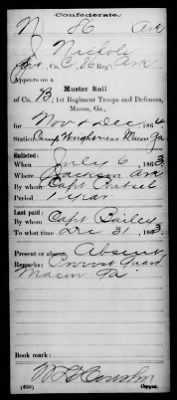 Confederate.
N 36 Ark
J. Nichols
Co. C, 36 Reg. Ark
Appears on a
Muster Roll
of Co. B, 1st Regiment Troops and Defences,
Macon, Ga.,
for Nov & Dec, 1864
Station Camp near Macon Ga
Enlisted:
When July 6, 1863
Where Jackson Ark
By whom Capt
Period 1 year
Last paid:
By whom Capt Bailey
To what time Dec 31, 1863
Present or absent Absent
Remarks: Provost Guard
Macon Ga
Book mark:
(650) Copyist.